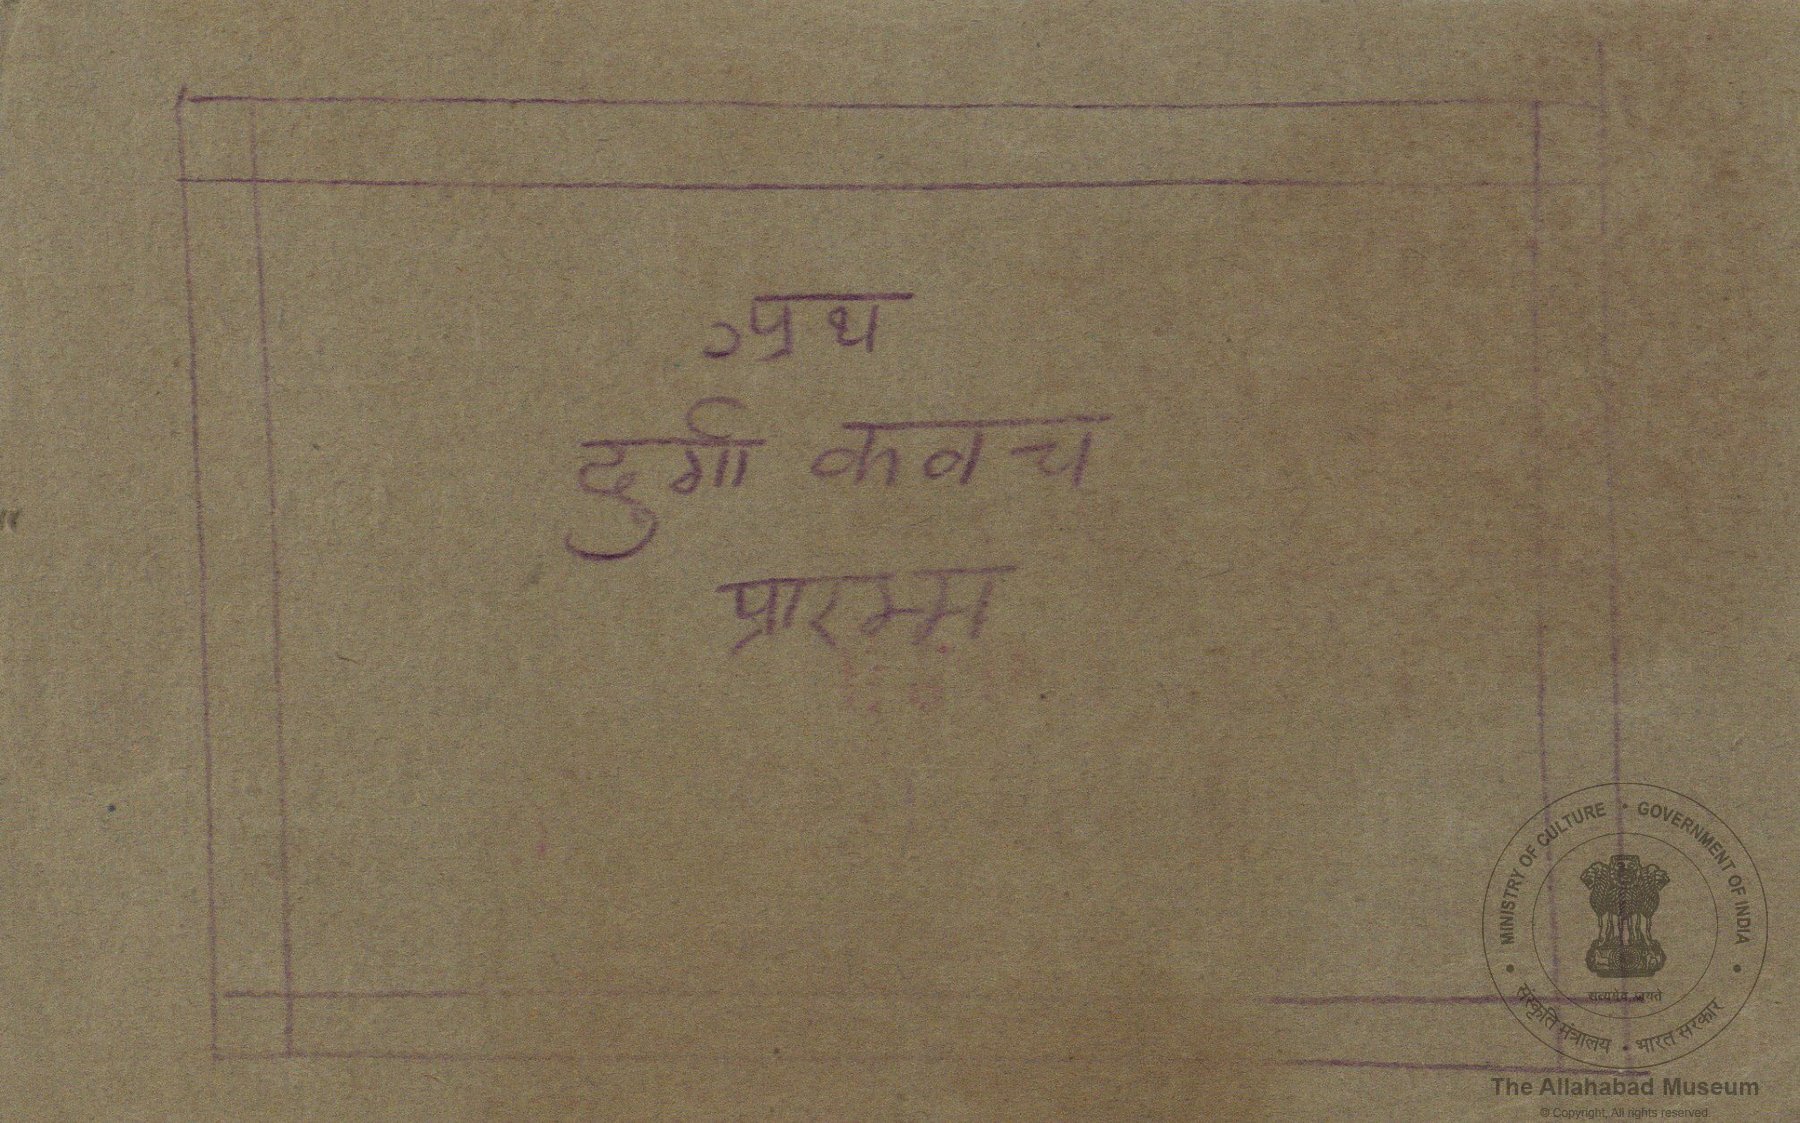 अथ
दुर्गा कवच
प्रारम्भ
MINISTRY OF CULTURE • GOVERNMENT OF INDIA
सत्यमेव जयते
संस्कृति मंत्रालय • भारत सरकार
The Allahabad Museum
© Copyright, All rights reserved